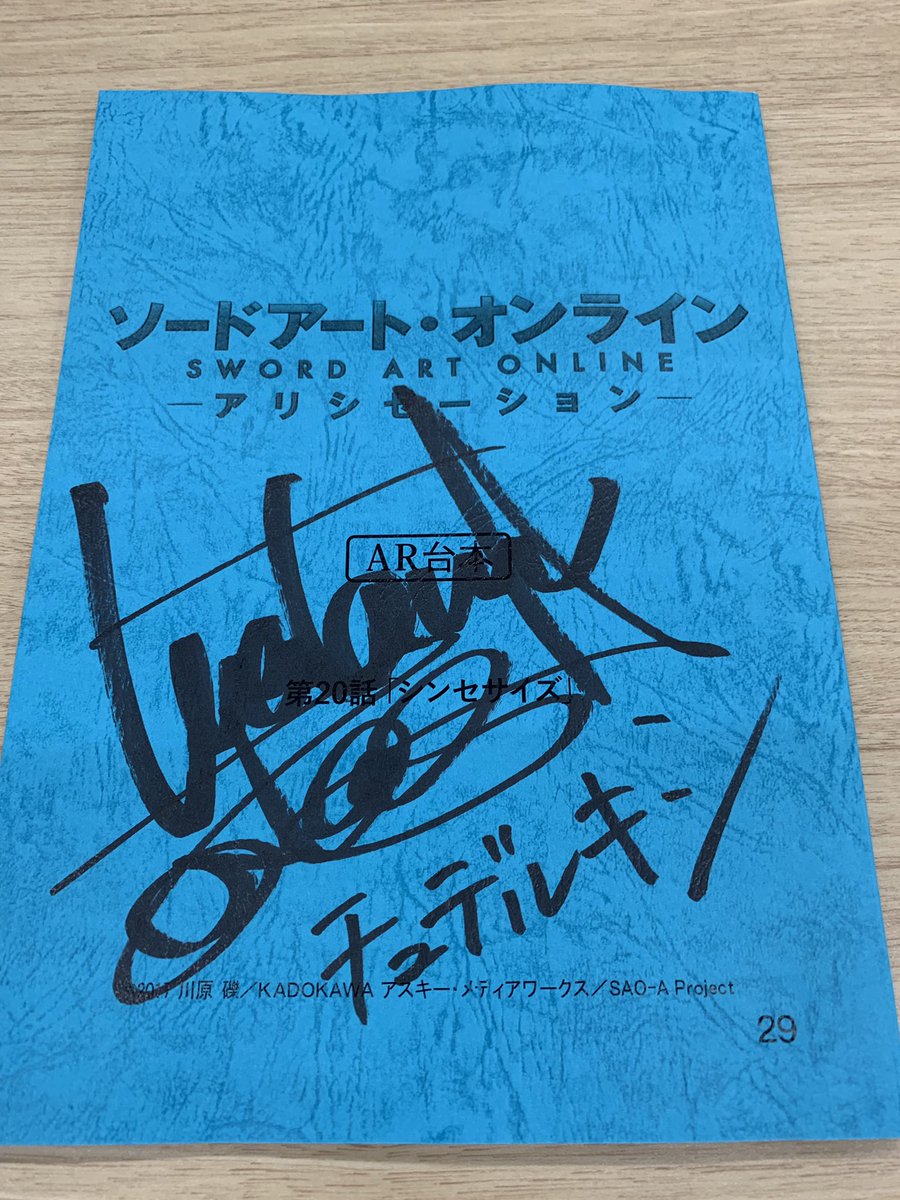 ソードアート・オンライン
SWORD ART ONLINE
―アリシゼーション―
AR台本
第20話「シンセサイズ」
チュデルキン
川原 礫／KADOKAWA アスキー・メディアワークス／SAO-A Project
29